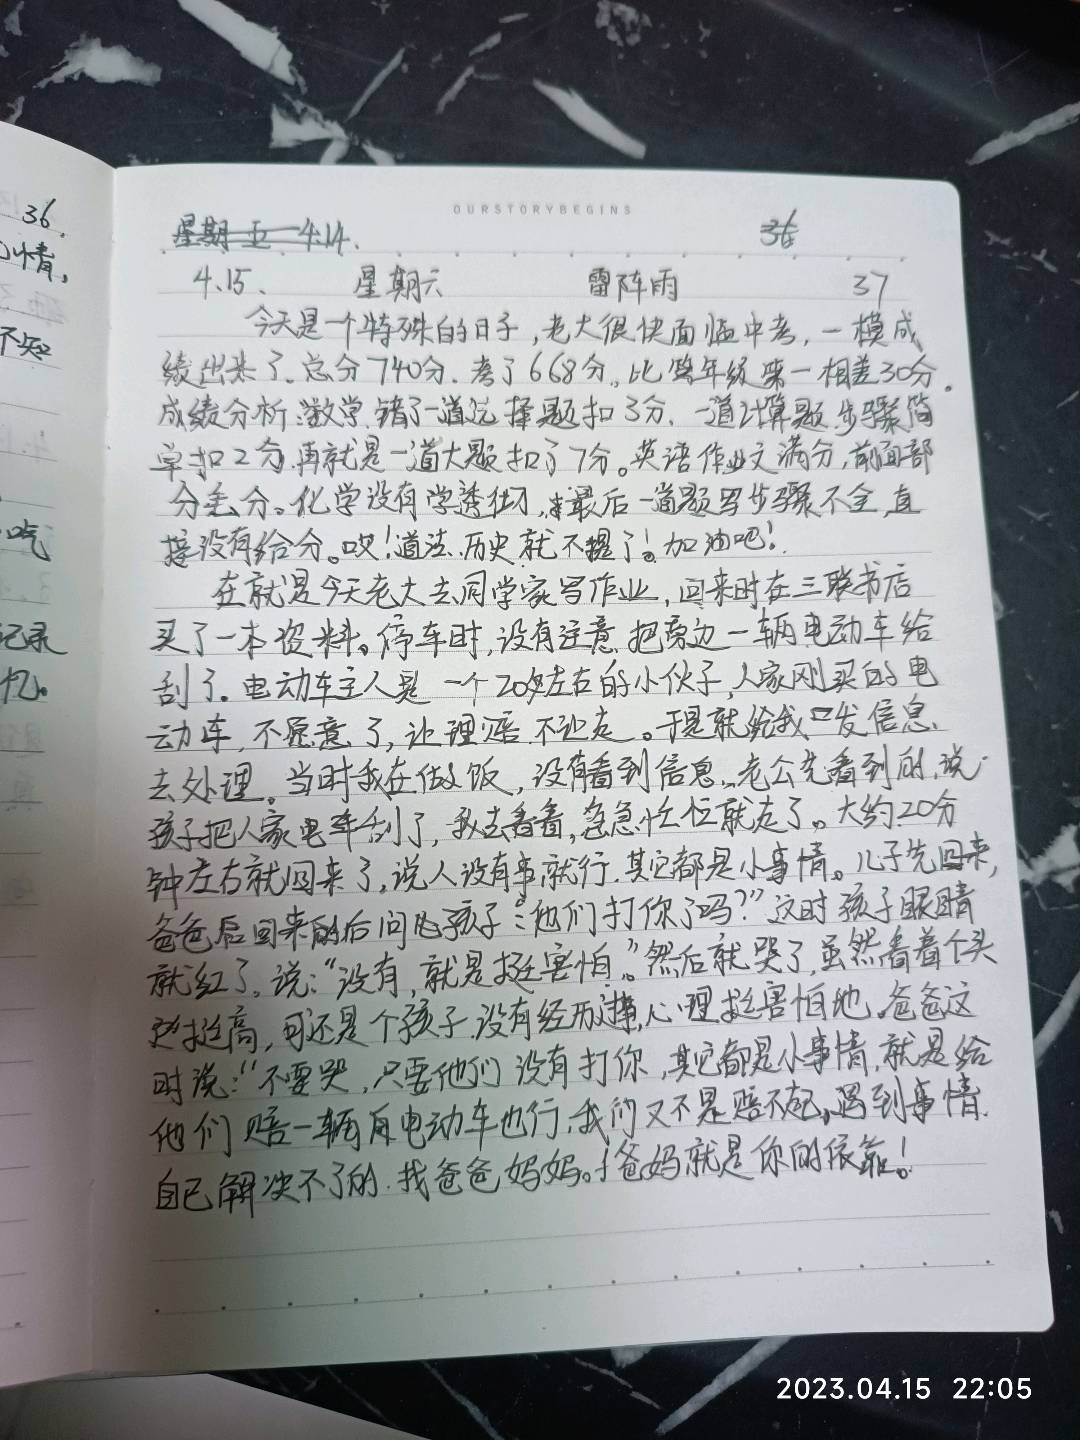 36
心情,
不知
吃
记录
忆。
OURSTORYBEGINS
星期五 4.14. 36
4.15. 星期六 雷阵雨 37
今天是一个特殊的日子,老大很快面临中考,一模成
绩出来了。总分740分.考了668分。比年级第一相差30分。
成绩分析:数学,错了一道选择题扣3分.一道计算题,步骤简
单扣2分.再就是一道大题扣了7分。英语作业文满分,前面部
分丢分。化学没有学透彻,最后一道题写步骤不全,直
接没有给分。哎!道法、历史就不提了!加油吧!
在就是今天老大去同学家写作业,回来时在三联书店
买了一本资料。停车时,没有注意,把旁边一辆电动车给
刮了.电动车主人是一个20岁左右的小伙子,人家刚买的电
动车,不愿意了,让理赔.不让走。于是就给我发信息.
去处理。当时我在做饭,没有看到信息,老公先看到的,说
孩子把人家电车刮了,我去看看,急急忙忙就走了。大约20分
钟左右就回来了,说人没有事就行.其它都是小事情。儿子先回来,
爸爸后回来的后问孩子:"他们打你了吗?"这时孩子眼睛
就红了。说:"没有,就是挺害怕。"然后就哭了,虽然看着个头
挺高,可还是个孩子.没有经历过事,心理挺害怕地。爸爸这
时说:"不要哭,只要他们没有打你,其它都是小事情,就是给
他们赔一辆电动车也行,我们又不是赔不起,遇到事情.
自己解决不了的.找爸爸妈妈。爸妈就是你的依靠!
2023.04.15 22:05